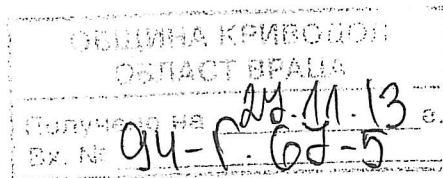 ОБЩИНА КРИВОДОЛ
ОБЛАСТ ВРАЦА
Получено на 27.11.13 г.
Вх. № 94-Г. 67-5